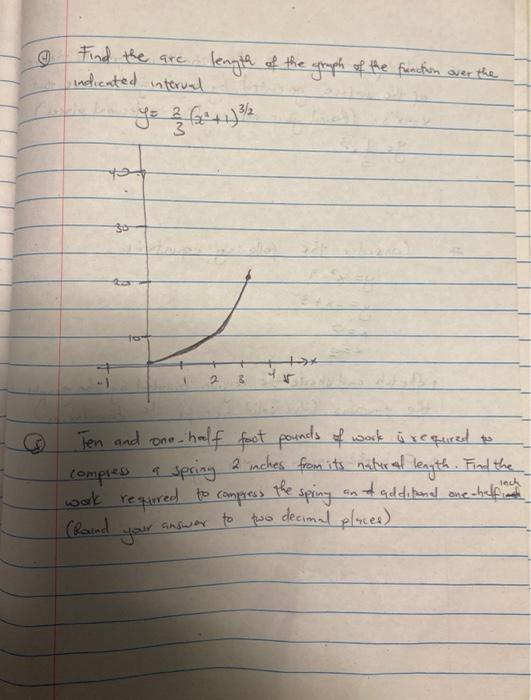 ④ Find the arc length of the graph of the function over the
indicated interval
y = 2/3 (x² + 1)^3/2
40
30
20
10
-1 1 2 3 4 5 x
⑤ Ten and one-half foot pounds of work is required to
compress a spring 2 inches from its natural length. Find the
work required to compress the spring an additional one-half inch
(Round your answer to two decimal places)